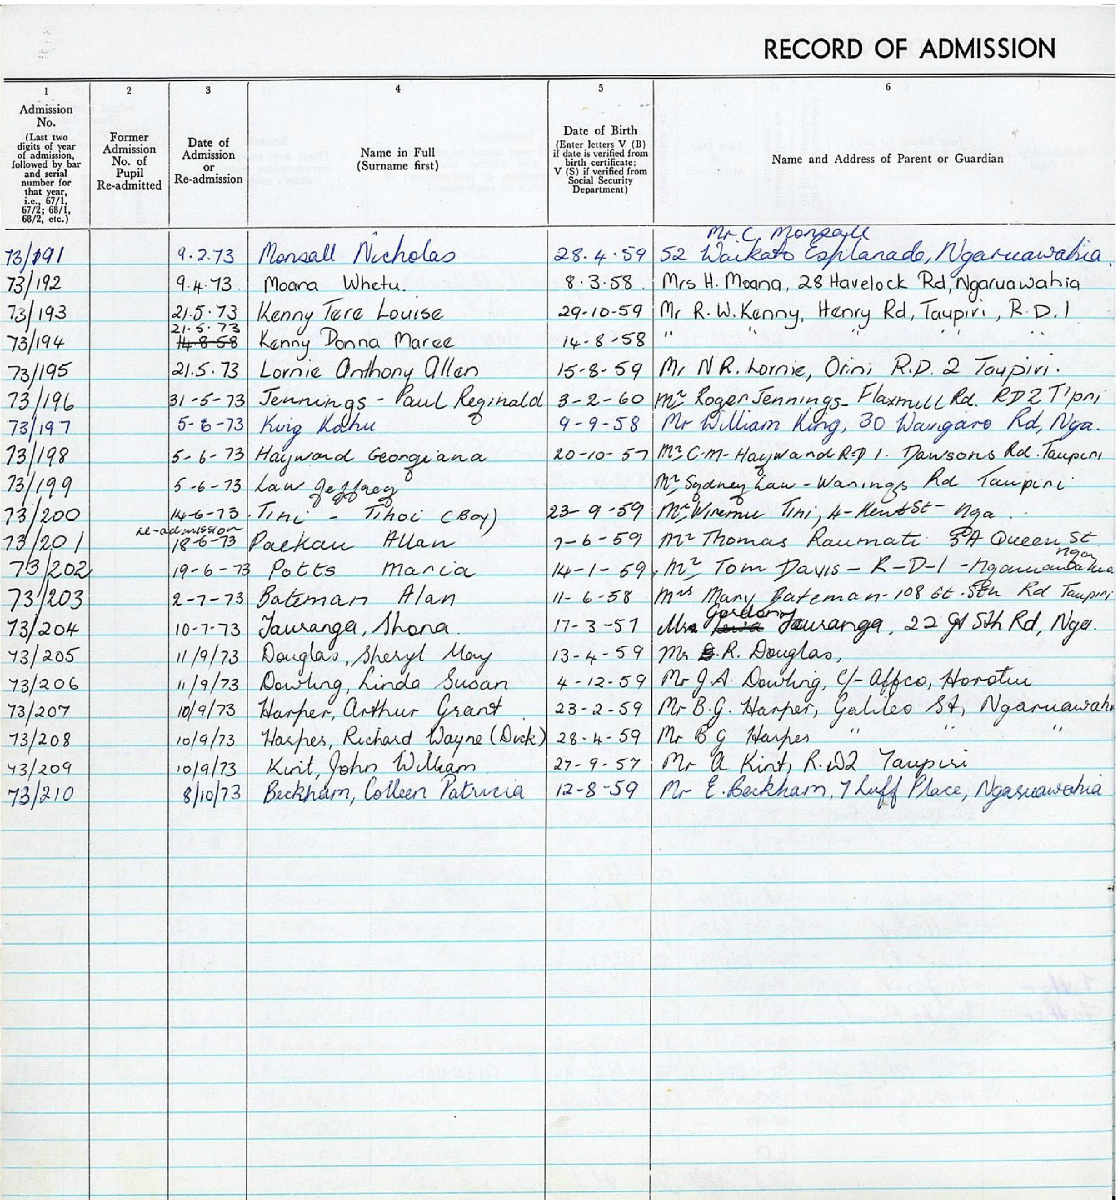 RECORD OF ADMISSION
1 2 3 4 5 6
Admission No. (Last two digits of year of admission, followed by bar and serial number for that year, i.e., 67/1, 67/2; 68/1, 68/2, etc.) Former Admission No. of Pupil Re-admitted Date of Admission or Re-admission Name in Full (Surname first) Date of Birth (Enter letters V (B) if date is verified from birth certificate; V (S) if verified from Social Security Department) Name and Address of Parent or Guardian
Mr. C. Monsall
73/191 9.2.73 Monsall Nicholas 28.4.59 52 Waikato Esplanade, Ngaruawahia.
73/192 9.4.73. Moana Whetu. 8.3.58. Mrs H. Moana, 28 Havelock Rd, Ngaruawahia
73/193 21.5.73 Kenny Tere Louise 29-10-59 Mr R.W. Kenny, Henry Rd, Taupiri, R.D.1
21.5.73
73/194 14-8-58 Kenny Donna Maree 14-8-58 " " " " "
73/195 21.5.73 Lornie Anthony Allen 15-8-59 Mr N R. Lornie, Orini R.D. 2 Taupiri.
73/196 31-5-73 Jennings - Paul Reginald 3-2-60 Mr Roger Jennings - Flaxmill Rd. RD2 T'piri
73/197 5-6-73 King Kahu 9-9-58 Mr William King, 30 Wangaro Rd, Nga.
73/198 5-6-73 Hayward Georgiana 20-10-57 Mr C-M-Hayward R-D 1. Dawsons Rd. Taupiri
73/199 5-6-73 Law Jeffrey Mr Sydney Law - Warings Rd Taupiri
73/200 14-6-73 Tini - Tihoi (Boy) 23-9-59 Mr Wiremu Tini, 4-Kent St - Nga.
re-admission
73/201 18-6-73 Paekau Allan 7-6-59 Mr Thomas Raumati 3A Queen St
Ngar
73/202 19-6-73 Potts Maria 14-1-59 Mr Tom Davis - R-D-1 - Ngaruawahia
73/203 2-7-73 Bateman Alan 11-6-58 Mrs Mary Bateman - 108 Gt. Sth Rd Taupiri
Gordon
73/204 10-7-73 Tauranga, Shona. 17-3-57 Mr Tauranga, 22 Gt Sth Rd, Nga.
73/205 11/9/73 Douglas, Sheryl May 13-4-59 Mr R. Douglas,
73/206 11/9/73 Dowling, Linda Susan 4-12-59 Mr J.A. Dowling, C/- Affco, Horotiu
73/207 10/9/73 Harper, Arthur Grant 23-2-59 Mr B.G. Harper, Galileo St, Ngaruawahia
73/208 10/9/73 Harper, Richard Wayne (Dick) 28-4-59 Mr B G Harper " " "
73/209 10/9/73 Kirit, John William 27-9-57 Mr A Kirit, R.D2 Taupiri
73/210 8/10/73 Beckham, Colleen Patricia 12-8-59 Mr E. Beckham, 7 Luff Place, Ngaruawahia